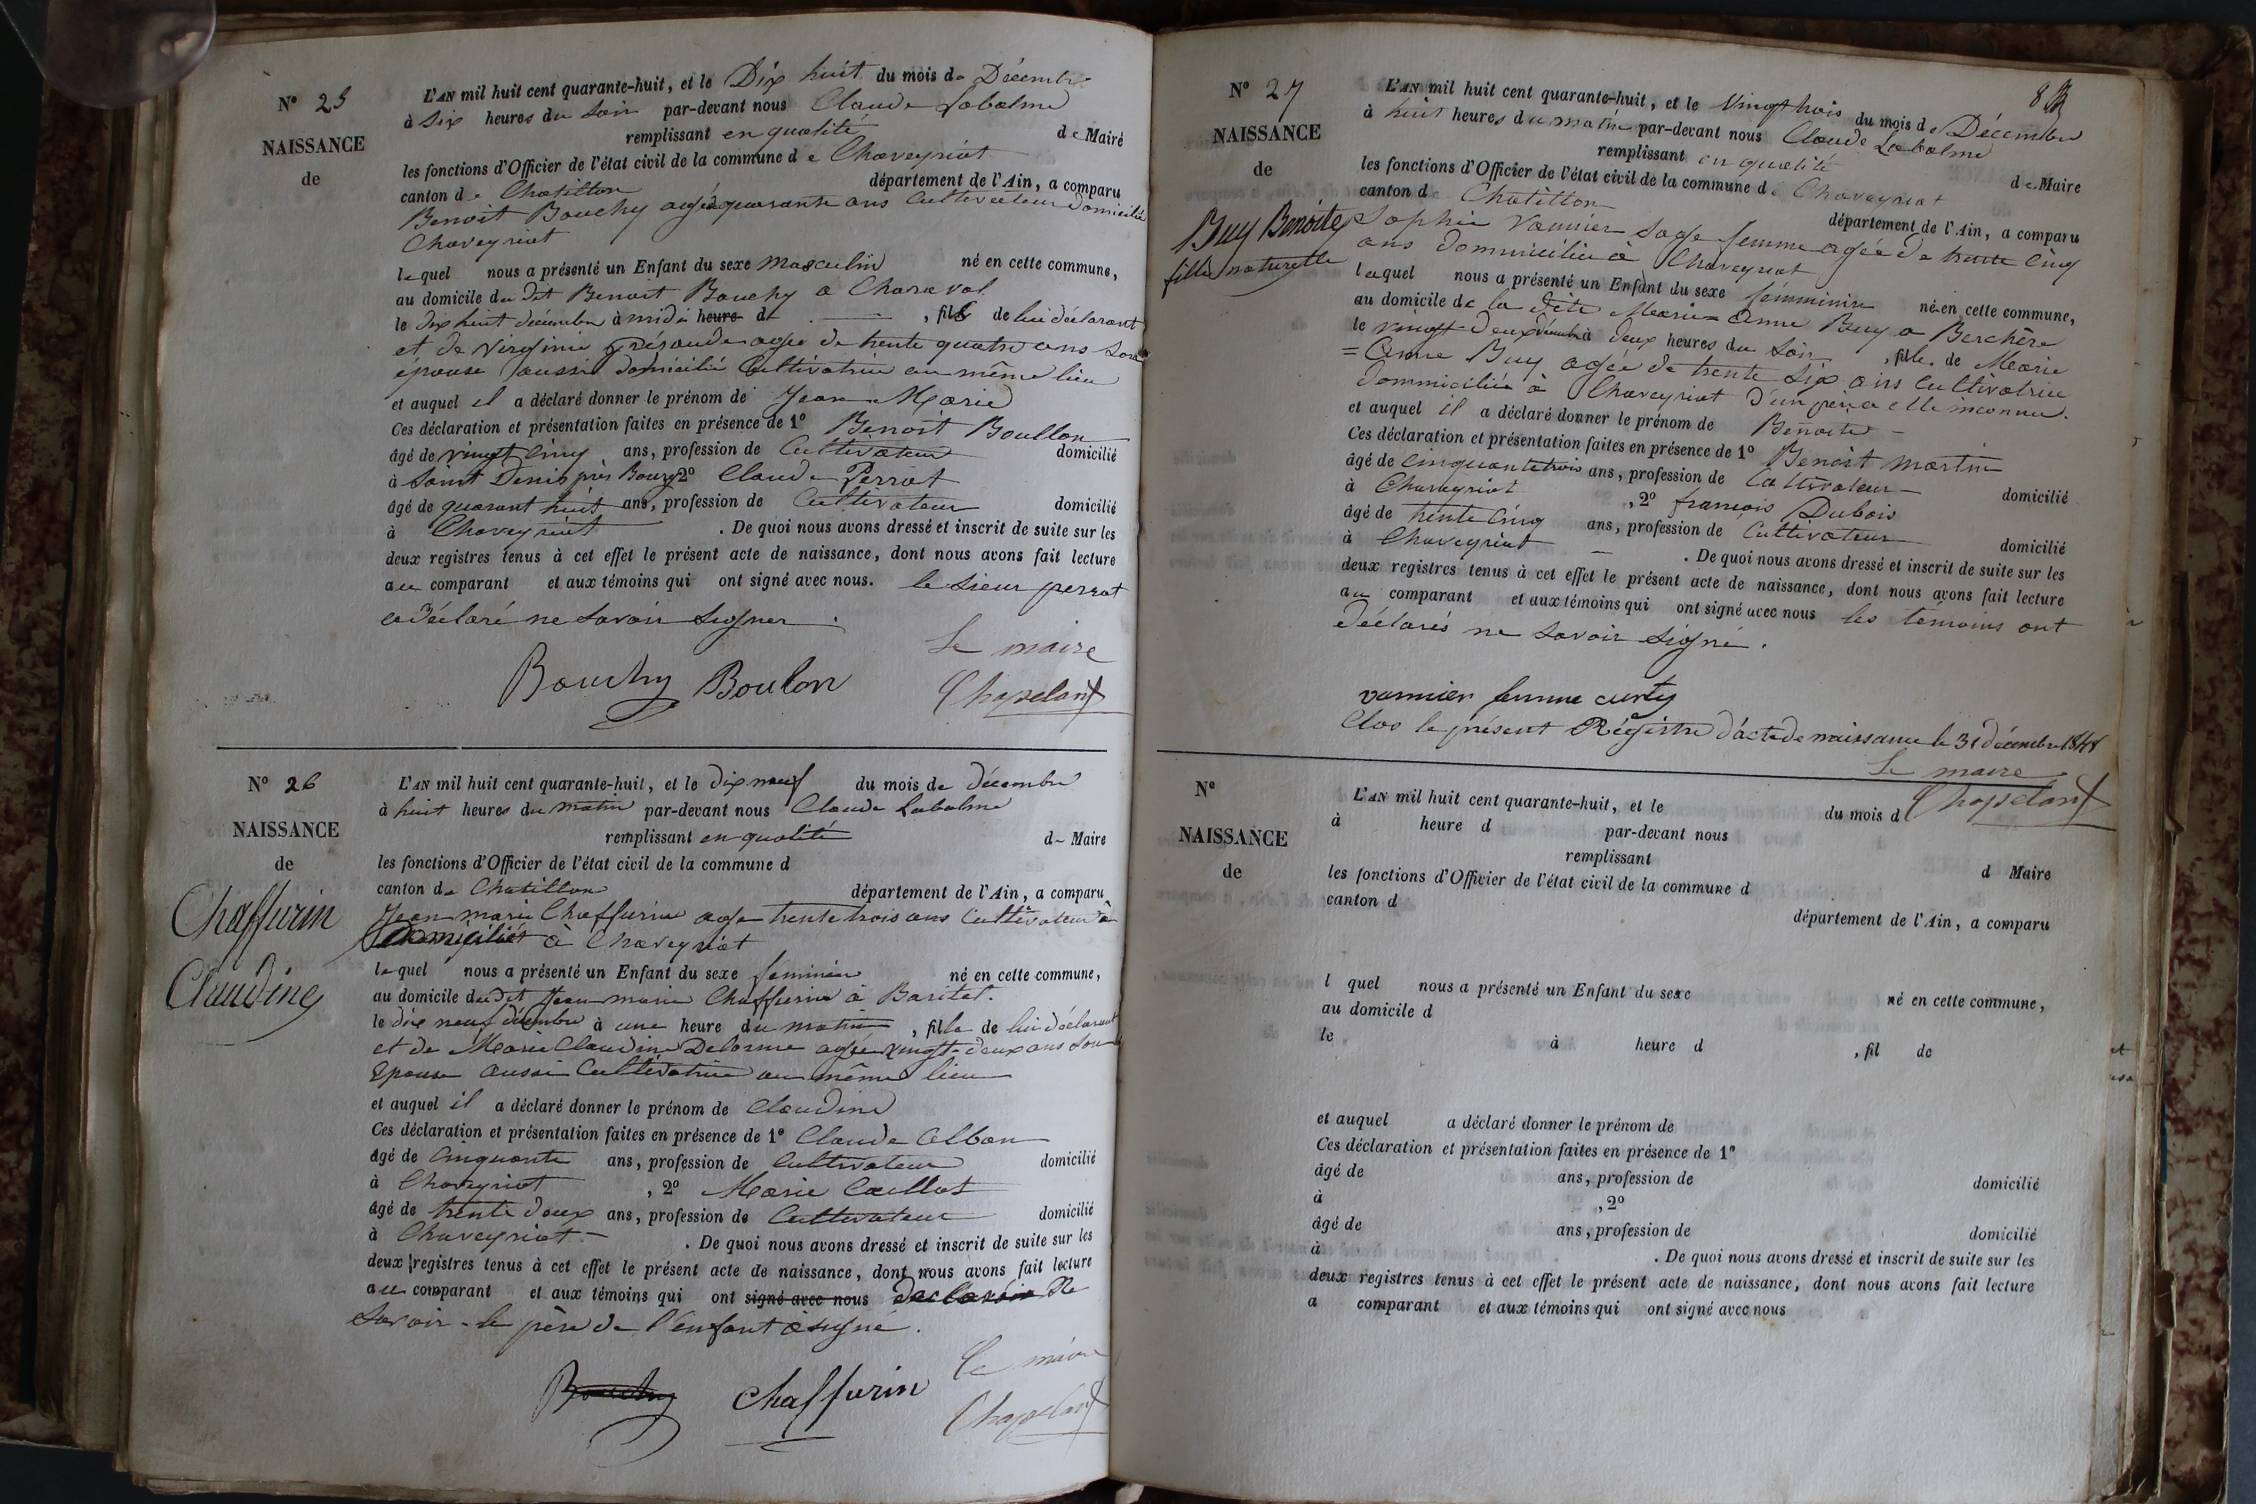 N° 25
NAISSANCE
de
L'AN mil huit cent quarante-huit, et le Dix huit du mois de Décembre
à Six heures du Soir par-devant nous Claude Labalme
remplissant en qualité de Maire
les fonctions d'Officier de l'état civil de la commune de Chaveyriat
canton de Chatillon département de l'Ain, a comparu
Benoit Bouchy agé quarante ans Cultivateur domicilié
Chaveyriat
lequel nous a présenté un Enfant du sexe masculin né en cette commune,
au domicile du dit Benoit Bouchy a
le dix huit décembre à midi heure d , fils de lui déclarant
et de Virginie agée de trente quatre ans son
épouse aussi domicilié Cultivatrice au même lieu
et auquel il a déclaré donner le prénom de Jean Marie
Ces déclaration et présentation faites en présence de 1° Benoit Boullon
âgé de vingt cinq ans, profession de Cultivateur domicilié
à Saint Denis près Bourg 2° Claude Perrat
âgé de quarant huit ans, profession de Cultivateur domicilié
à Chaveyriat . De quoi nous avons dressé et inscrit de suite sur les
deux registres tenus à cet effet le présent acte de naissance, dont nous avons fait lecture
au comparant et aux témoins qui ont signé avec nous. le Sieur perrat
a déclaré ne savoir signer.
Le maire
Bouchy Boulon Chapelant
N° 26
NAISSANCE
de
Chaffurin
Claudine
L'AN mil huit cent quarante-huit, et le dix neuf du mois de décembre
à huit heures du matin par-devant nous Claude Labalme
remplissant en qualité de Maire
les fonctions d'Officier de l'état civil de la commune d
canton de Chatillon département de l'Ain, a comparu
Jean marie Chaffurin age trente trois ans Cultivateur
domicilié à Chaveyriat
lequel nous a présenté un Enfant du sexe féminin né en cette commune,
au domicile du dit Jean marie Chaffurin à Baritel.
le dix neuf décembre à une heure du matin , fille de lui déclarant
et de Marie Claudine Delorme agée vingt-deux ans son
Epouse aussi Cultivatrice au même lieu
et auquel il a déclaré donner le prénom de Claudine
Ces déclaration et présentation faites en présence de 1° Claude Alban
âgé de Cinquante ans, profession de Cultivateur domicilié
à Chaveyriat , 2° Marie Caillat
âgé de trente deux ans, profession de Cultivateur domicilié
à Chaveyriat . De quoi nous avons dressé et inscrit de suite sur les
deux registres tenus à cet effet le présent acte de naissance, dont nous avons fait lecture
au comparant et aux témoins qui ont signé avec nous déclaré ne
Savoir. le père de l'enfant a signé.
Le maire
Bouchy Chaffurin Chapelant
8
N° 27
NAISSANCE
de
Buy Benoite
fille naturelle
L'AN mil huit cent quarante-huit, et le Vingt trois du mois de Décembre
à huit heures du matin par-devant nous Claude Labalme
remplissant en qualité de Maire
les fonctions d'Officier de l'état civil de la commune de Chaveyriat
canton de Chatillon département de l'Ain, a comparu
Sophie Vannier Sage femme agée de trente Cinq
ans domiciliée à Chaveyriat
laquel nous a présenté un Enfant du sexe fémminin né en cette commune,
au domicile de la dite Marie=Anne Buy a Berchère
le vingt-deux décembre à deux heures du Soir , fille de Marie
=Anne Buy agée de trente six ans Cultivatrice
dommiciliée à Chaveyriat d'un père a elle inconnu.
et auquel il a déclaré donner le prénom de Benoite
Ces déclaration et présentation faites en présence de 1° Benoit Martin
âgé de Cinquante trois ans, profession de Cultivateur domicilié
à Chaveyriat , 2° françois Dubois
âgé de trente Cinq ans, profession de Cultivateur domicilié
à Chaveyriat . De quoi nous avons dressé et inscrit de suite sur les
deux registres tenus à cet effet le présent acte de naissance, dont nous avons fait lecture
au comparant et aux témoins qui ont signé avec nous les témoins ont
déclarés ne savoir signé.
vannier femme curty
Clos le présent Régistre d'acte de naissance le 31 décembre 1848
Le maire
Chapelant
N°
NAISSANCE
de
L'AN mil huit cent quarante-huit, et le du mois d
à heure d par-devant nous
remplissant d Maire
les fonctions d'Officier de l'état civil de la commune d
canton d département de l'Ain, a comparu
l quel nous a présenté un Enfant du sexe né en cette commune,
au domicile d
le à heure d , fil de
et auquel a déclaré donner le prénom de
Ces déclaration et présentation faites en présence de 1°
âgé de ans, profession de domicilié
à , 2°
âgé de ans, profession de domicilié
à . De quoi nous avons dressé et inscrit de suite sur les
deux registres tenus à cet effet le présent acte de naissance, dont nous avons fait lecture
a comparant et aux témoins qui ont signé avec nous